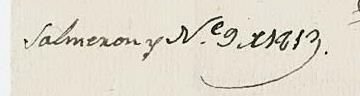 Salmeron y N.e 9 x 1813.